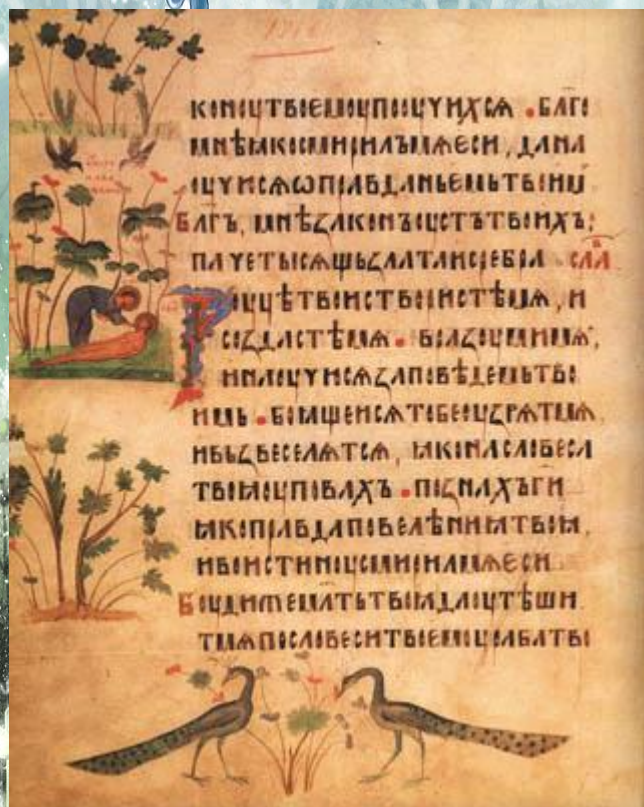 КОНОУТВОЕМОУПООУЧИХСѦ .БЛГО
МНѢꙖКОСМИРИЛЪМѦЕСИ , ДАНА
ОУЧИСѦѠПРАВДАНЬЕМЬТВОИМ
БЛГЪ, МНѢЗАКОНЪОУСТЪТВОИХЪ;
ПАЧЕТЫСѦЩЬЗЛАТАИСРЕБРА СЛА
РОУЦѢТВОИСТВОРИСТѢМѦ, И
СОЗДАСТѢМѦ . ВРАЗОУМИМѦ,
ИНАОУЧИСѦЗАПОВѢДЕМЬТВО
ИМЬ .БОꙖЩЕИСѦТОБЕОУЗРѦТМѦ
ИВЬЗВЕСЕЛѦТСѦ, ꙖКОНАСЛОВЕСА
ТВОꙖОУПОВАХЪ .ПОЗНАХЪГИ
ꙖКОПРАВДАПОВЕЛѢНИꙖТВОꙖ,
ИВОИСТИНОУСМИРИЛАМѦЕСИ
БОУДИЖЕМЛТЬТВОꙖДАОУТѢШИ
ТМѦПОСЛОВЕСИТВОЕМОУРАБАТВО